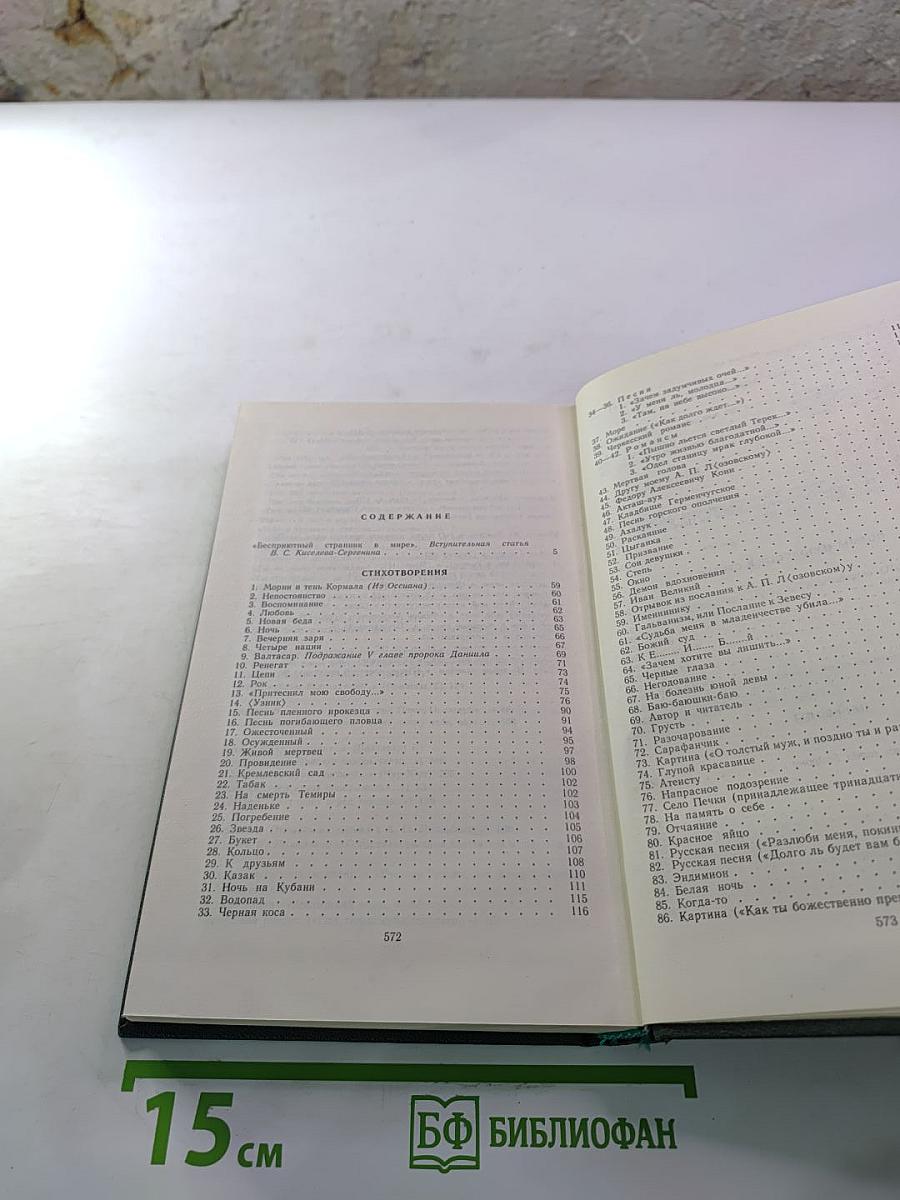 СОДЕРЖАНИЕ
«Бесприютный странник в мире». Вступительная статья
В. С. Киселева-Сергенина . . . . . . . . . . . . . . . 5
СТИХОТВОРЕНИЯ
1. Морни и тень Кормала (Из Оссиана) . . . . . . . . 59
2. Непостоянство . . . . . . . . . . . . . . . . 60
3. Воспоминание . . . . . . . . . . . . . . . . 61
4. Любовь . . . . . . . . . . . . . . . . 62
5. Новая беда . . . . . . . . . . . . . . . . 63
6. Ночь . . . . . . . . . . . . . . . . 65
7. Вечерняя заря . . . . . . . . . . . . . . . . 66
8. Четыре нации . . . . . . . . . . . . . . . . 67
9. Валтасар. Подражание V главе пророка Даниила . . . . 69
10. Ренегат . . . . . . . . . . . . . . . . 71
11. Цепи . . . . . . . . . . . . . . . . 73
12. Рок . . . . . . . . . . . . . . . . 74
13. «Притеснил мою свободу...» . . . . . . . . . . . 75
14. 〈Узник〉 . . . . . . . . . . . . . . . . 76
15. Песнь пленного ирокезца . . . . . . . . . . . . 90
16. Песнь погибающего пловца . . . . . . . . . . . . 91
17. Ожесточенный . . . . . . . . . . . . . . . . 94
18. Осужденный . . . . . . . . . . . . . . . . 95
19. Живой мертвец . . . . . . . . . . . . . . . . 97
20. Провидение . . . . . . . . . . . . . . . . 98
21. Кремлевский сад . . . . . . . . . . . . . . . . 100
22. Табак . . . . . . . . . . . . . . . . 102
23. На смерть Темиры . . . . . . . . . . . . . . . . 102
24. Наденьке . . . . . . . . . . . . . . . . 103
25. Погребение . . . . . . . . . . . . . . . . 104
26. Звезда . . . . . . . . . . . . . . . . 105
27. Букет . . . . . . . . . . . . . . . . 106
28. Кольцо . . . . . . . . . . . . . . . . 107
29. К друзьям . . . . . . . . . . . . . . . . 108
30. Казак . . . . . . . . . . . . . . . . 110
31. Ночь на Кубани . . . . . . . . . . . . . . . . 111
32. Водопад . . . . . . . . . . . . . . . . 115
33. Черная коса . . . . . . . . . . . . . . . . 116
572
34—36. Песни
1. «Зачем задумчивых очей...»
2. «У меня ль, молодца...»
3. «Там, на небе высоко...»
37. Море
38. Ожидание («Как долго ждет...»)
39. Черкесский романс
40—42. Романсы
1. «Пышно льется светлый Терек...»
2. «Утро жизнью благодатной...»
3. «Одел станицу мрак глубокой...»
43. Мертвая голова
44. Другу моему А. П. Л〈озовскому〉
45. Федору Алексеевичу Кони
46. Акташ-аух
47. Кладбище Герменчугское
48. Песнь горского ополчения
49. Ахалук
50. Раскаяние
51. Цыганка
52. Призвание
53. Сон девушки
54. Степь
55. Окно
56. Демон вдохновения
57. Иван Великий
58. Отрывок из послания к А. П. Л〈озовском〉у
59. Имениннику
60. Гальванизм, или Послание к Зевесу
61. «Судьба меня в младенчестве убила...»
62. Божий суд
63. К Е........ И....... Б.......й
64. «Зачем хотите вы лишить...»
65. Черные глаза
66. Негодование
67. На болезнь юной девы
68. Баю-баюшки-баю
69. Автор и читатель
70. Грусть
71. Разочарование
72. Сарафанчик
73. Картина («О толстый муж, и поздно ты и ра
74. Глупой красавице
75. Атеисту
76. Напрасное подозрение
77. Село Печки (принадлежащее тринадцати
78. На память о себе
79. Отчаяние
80. Красное яйцо
81. Русская песня («Разлюби меня, покин
82. Русская песня («Долго ль будет вам б
83. Эндимион
84. Белая ночь
85. Когда-то
86. Картина («Как ты божественно пре
573
15 см
БФ БИБЛИОФАН